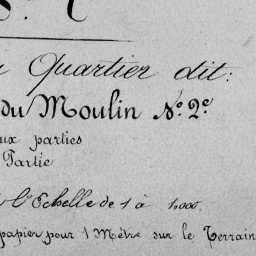 Quartier dit:
du Moulin N.º 2.e
parties
Partie
l'Echelle de 1 à 1.000.
papier pour 1 Mètre sur le Terrain